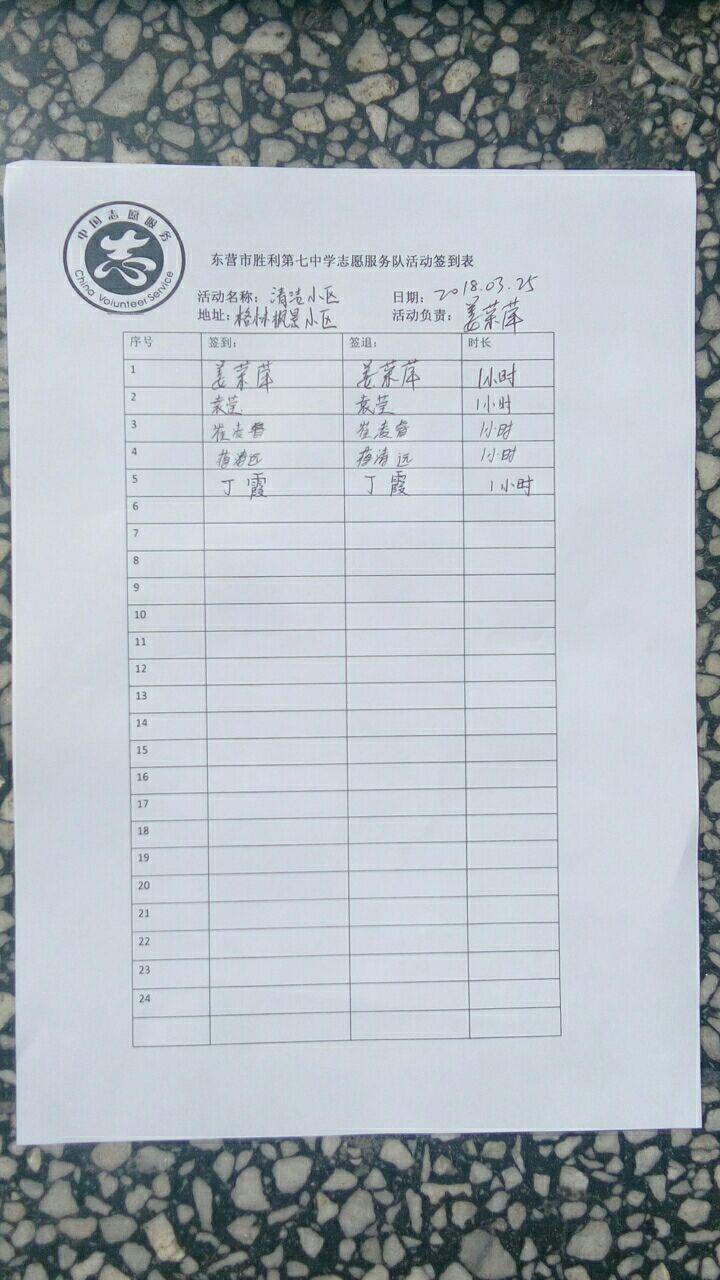 中国志愿服务
志
China Volunteer Service
东营市胜利第七中学志愿服务队活动签到表
活动名称：清洁小区 日期：2018.03.25
地址：格林枫景小区 活动负责：姜荣萍
序号 签到： 签退： 时长
1 姜荣萍 姜荣萍 1小时
2 袁莹 袁莹 1小时
3 崔凌睿 崔凌睿 1小时
4 清远 清远 1小时
5 丁霞 丁霞 1小时
6
7
8
9
10
11
12
13
14
15
16
17
18
19
20
21
22
23
24